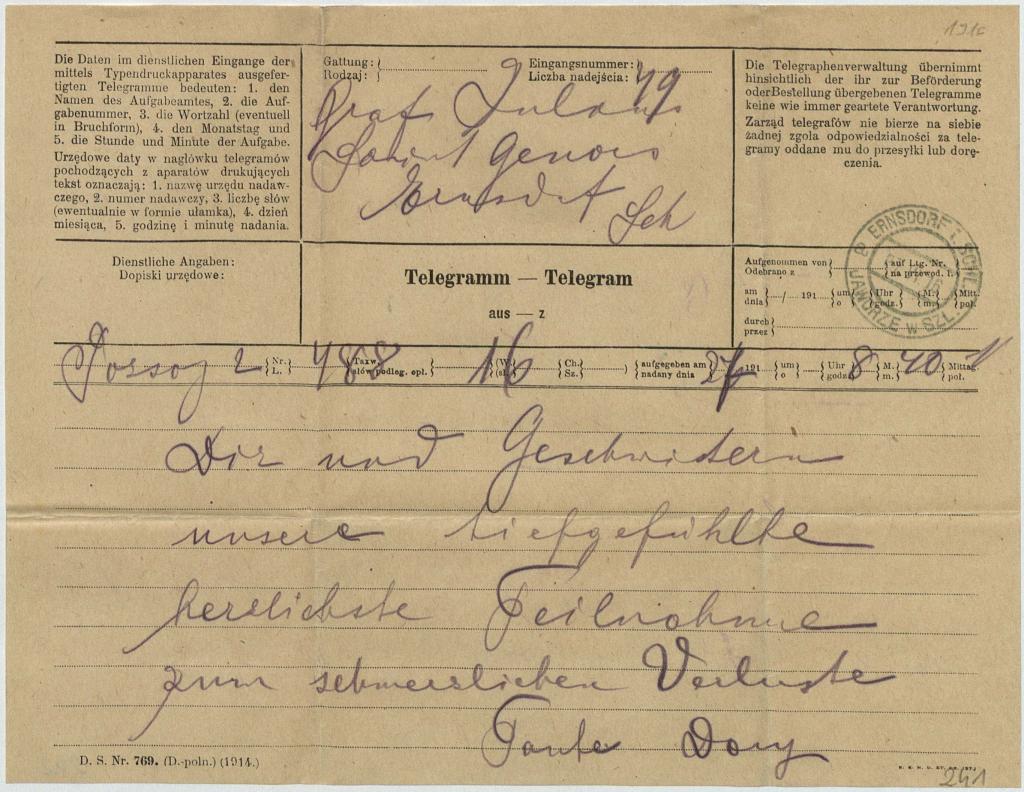 191
Die Daten im dienstlichen Eingange der
mittels Typendruckapparates ausgefer-
tigten Telegramme bedeuten: 1. den
Namen des Aufgabeamtes, 2. die Auf-
gabenummer, 3. die Wortzahl (eventuell
in Bruchform), 4. den Monatstag und
5. die Stunde und Minute der Aufgabe.
Urzędowe daty w nagłówku telegramów
pochodzących z aparatów drukujących
tekst oznaczają: 1. nazwę urzędu nadaw-
czego, 2. numer nadawczy, 3. liczbę słów
(ewentualnie w formie ułamka), 4. dzień
miesiąca, 5. godzinę i minutę nadania.
Gattung: Eingangsnummer:
Rodzaj: Liczba nadejścia: 49
Graf
Saint Genois
Ernsdorf
Sch
Die Telegraphenverwaltung übernimmt
hinsichtlich der ihr zur Beförderung
oder Bestellung übergebenen Telegramme
keine wie immer geartete Verantwortung.
Zarząd telegrafów nie bierze na siebie
żadnej zgola odpowiedzialności za tele-
gramy oddane mu do przesyłki lub dorę-
czenia.
ERNSDORF i. SCHL.
JAWORZE W SZL.
Dienstliche Angaben:
Dopiski urzędowe:
Telegramm — Telegram
aus — z
Aufgenommen von auf Ltg. Nr.
Odebrano z na przewod. l.
am / 191 um Uhr M. Mitt.
dnia o godz. m. poł.
durch
przez
Nr. 488 Taxw. 16 (W. Ch. ) aufgegeben am 27 191 um Uhr 8 M. 40 Mittag
L. słów podleg. opł. (sł. Sz. nadany dnia o godz. m. poł.
Dir und Geschwistern
unsere tiefgefühlte
herzlichste Teilnahme
zum schmerzlichen Verluste
Tante Dory
D. S. Nr. 769. (D.-poln.) (1914.)
241